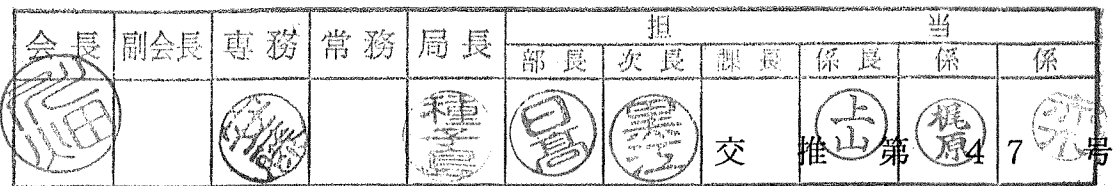 会長 副会長 専務 常務 局長 担当
部長 次長 課長 係長 係 係
種子島 日高 上山 梶原
交推第47号